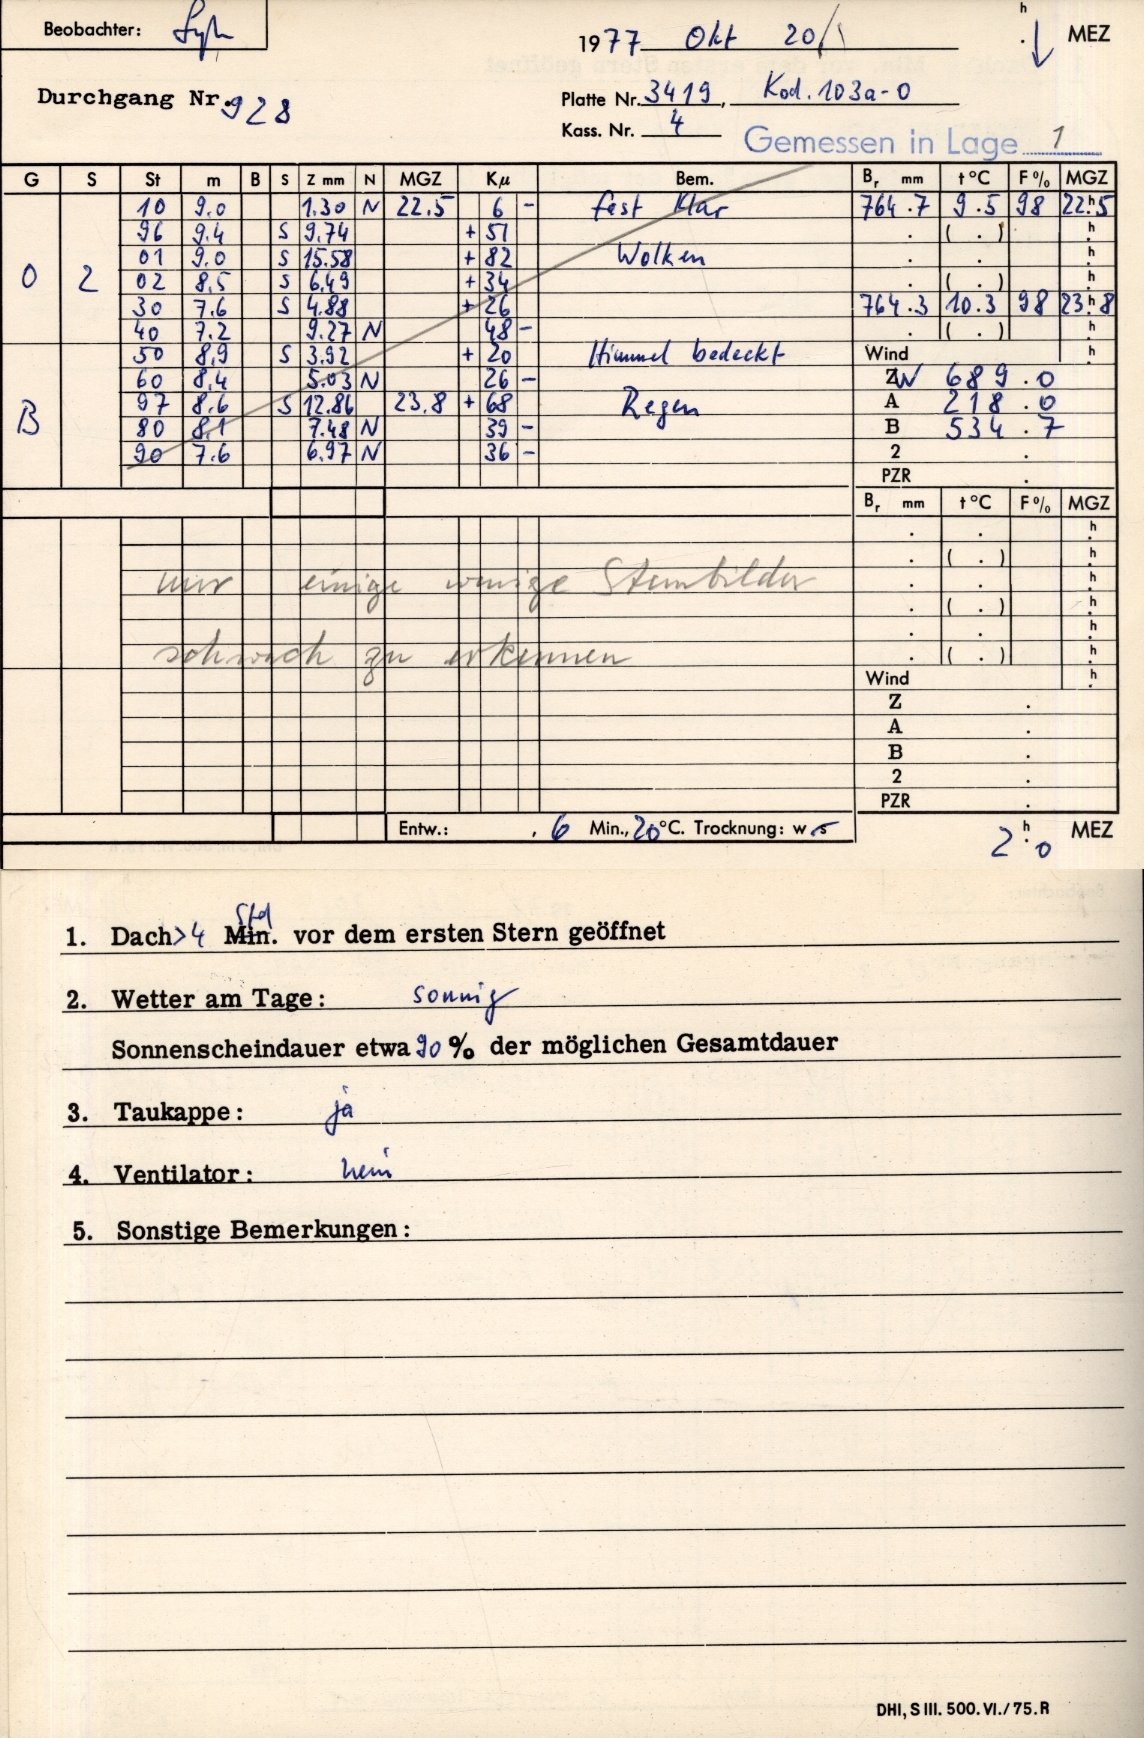 Beobachter:
1977 Okt 20/ h . MEZ
Durchgang Nr. 928
Platte Nr. 3419, Kod. 103a-0
Kass. Nr. 4
Gemessen in Lage 1
G S St m B S Z mm N MGZ Kµ Bem. Br mm t °C F % MGZ
10 9.0 1.30 N 22.5 6 - fast klar 764.7 9.5 98 22h.5
96 9.4 S 9.74 + 51 . ( . ) h.
01 9.0 S 15.58 + 82 Wolken . . h.
O 2 02 8.5 S 6.49 + 34 . ( . ) h.
30 7.6 S 4.88 + 26 764.3 10.3 98 23h.8
40 7.2 9.27 N 48 - . ( . ) h.
50 8.9 S 3.92 + 20 Himmel bedeckt Wind h.
60 8.4 5.03 N 26 - Z W 689.0
B 97 8.6 S 12.86 23.8 + 68 Regen A 218.0
80 8.1 7.48 N 39 - B 534.7
90 7.6 6.97 N 36 - 2 .
PZR .
Br mm t °C F % MGZ
. . h.
. ( . ) h.
nur einige wenige Sternbilder . . h.
. ( . ) h.
. . h.
schwach zu erkennen . ( . ) h.
Wind h.
Z .
A .
B .
2 .
PZR .
Entw.: , 6 Min., 20 °C. Trocknung: w s
2h.0 MEZ
1. Dach >4 Min. Std vor dem ersten Stern geöffnet
2. Wetter am Tage: sonnig
Sonnenscheindauer etwa 90 % der möglichen Gesamtdauer
3. Taukappe: ja
4. Ventilator: nein
5. Sonstige Bemerkungen:
DHI, S III. 500. VI./75. R